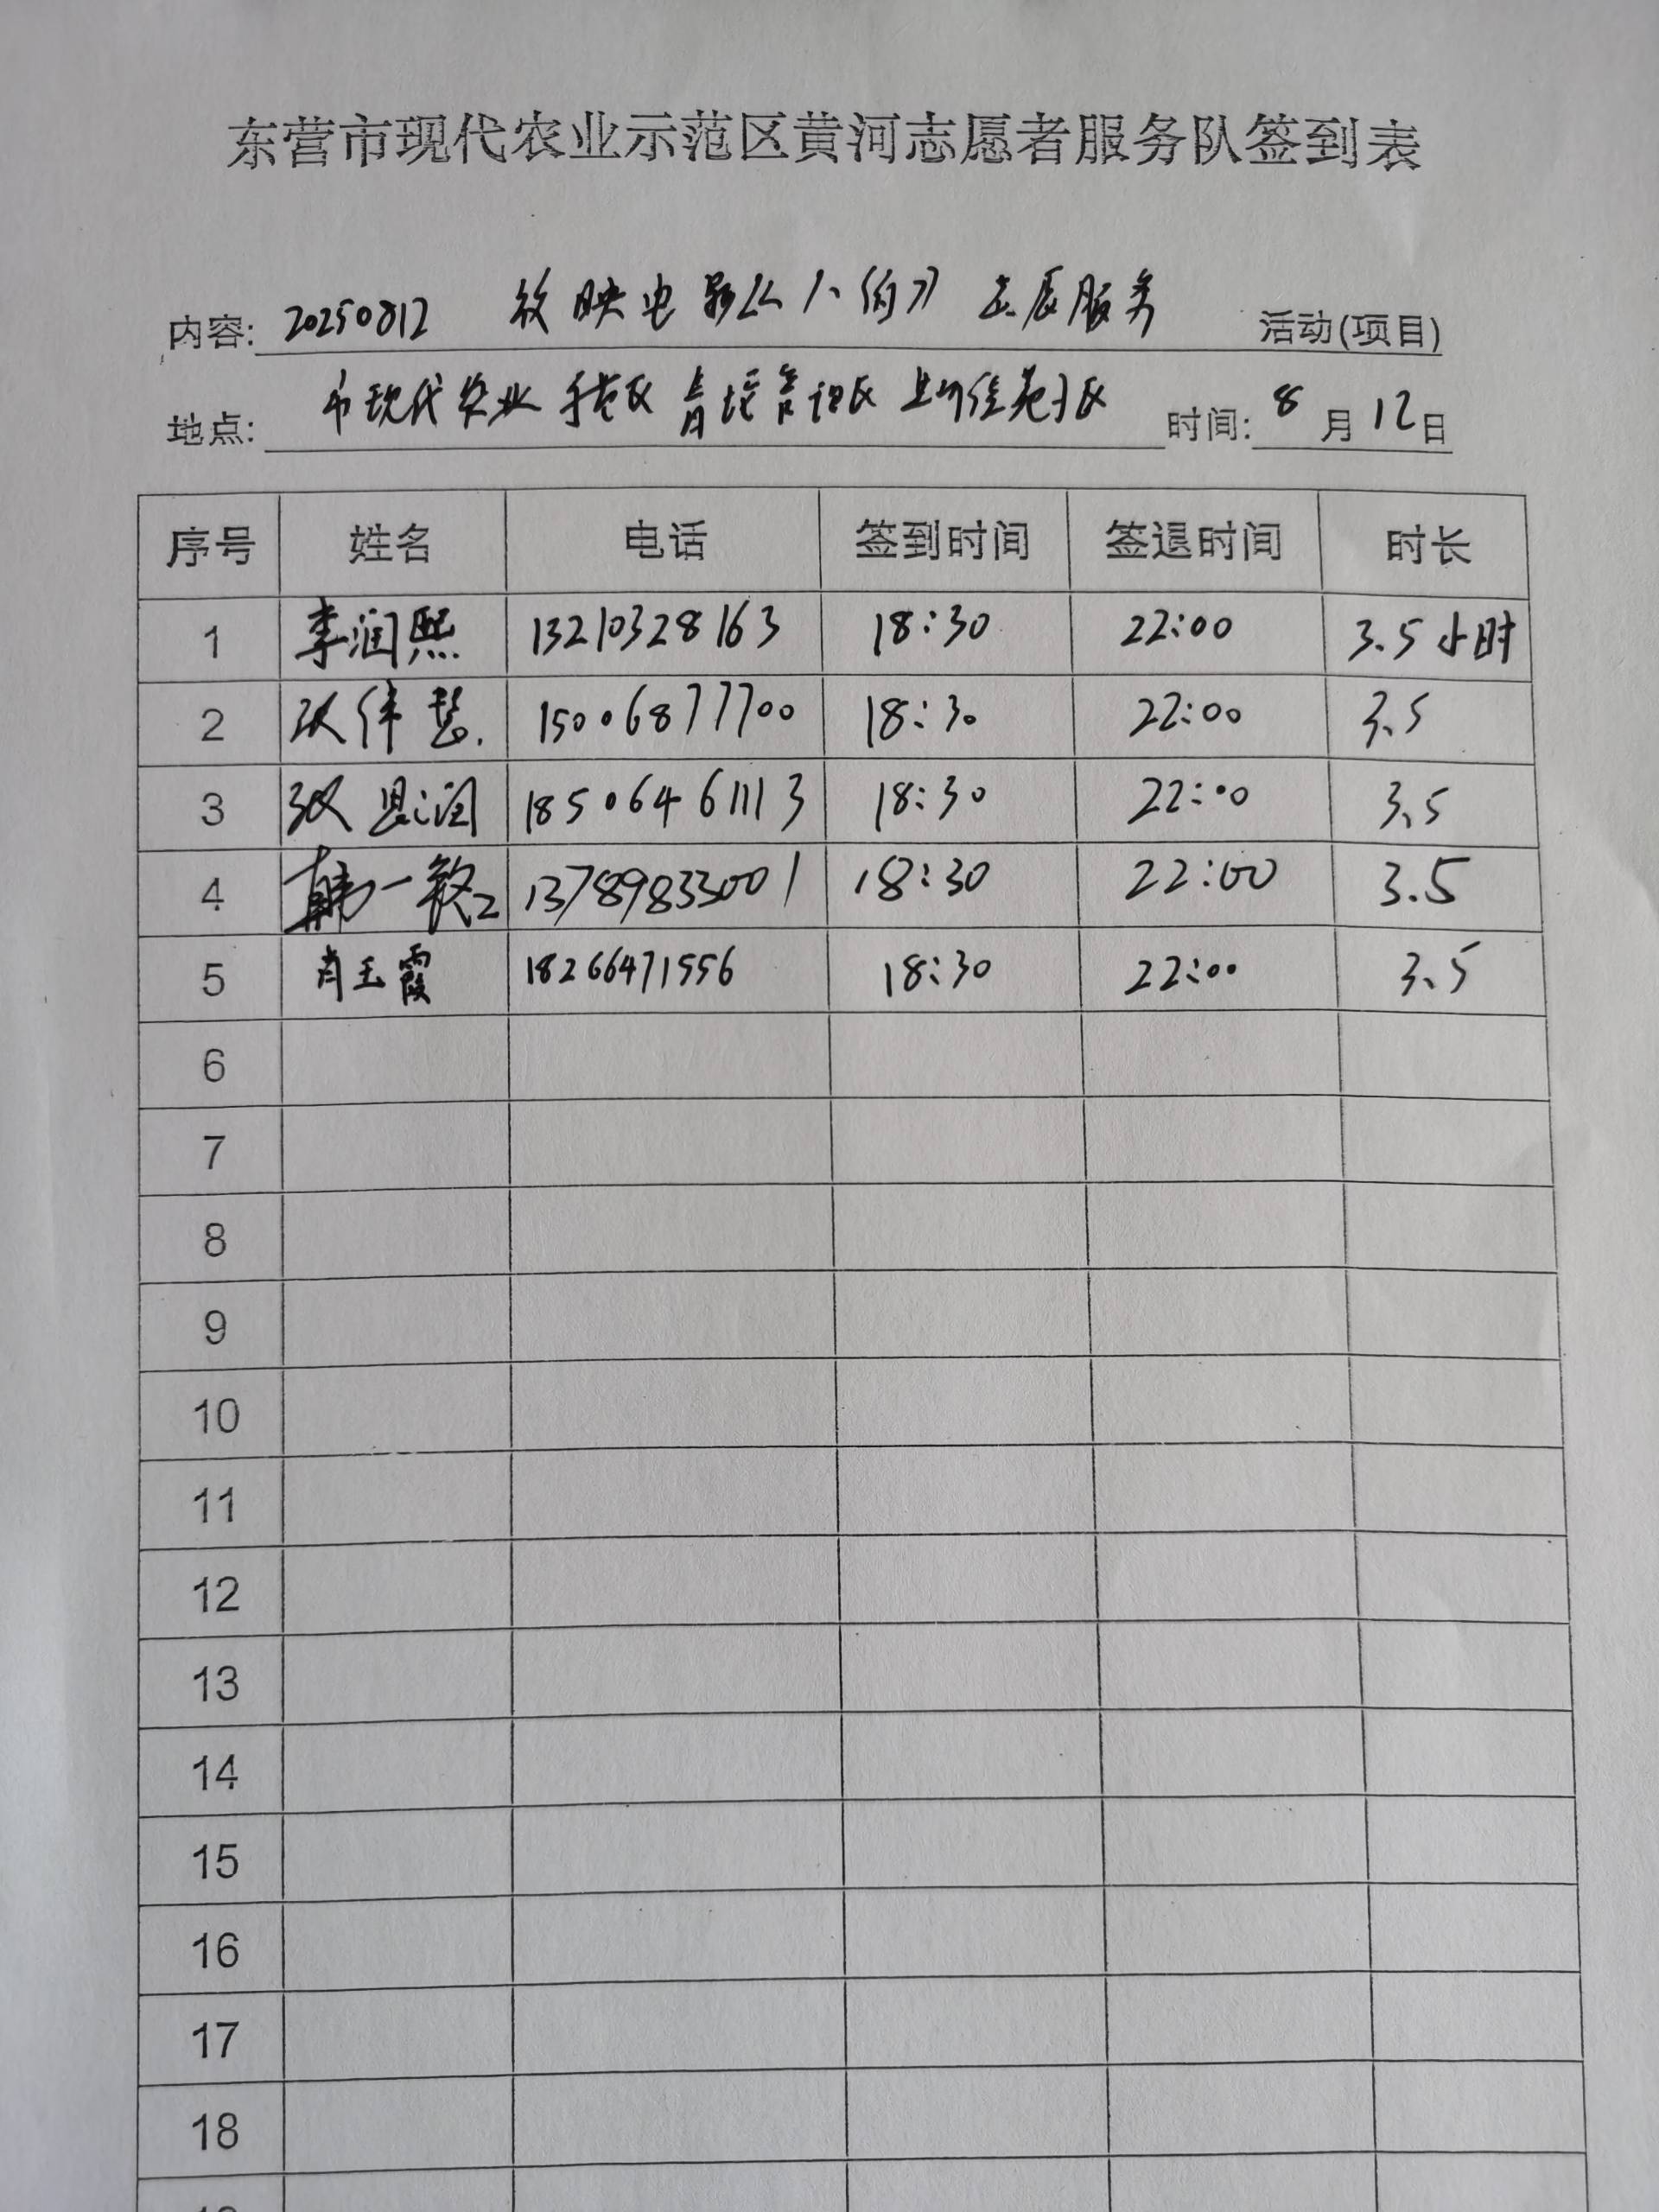 东营市现代农业示范区黄河志愿者服务队签到表
内容: 20250812 放映电影《八佰》志愿服务 活动(项目)
地点: 市现代农业示范区 管理区 佳苑小区 时间: 8月12日
序号 姓名 电话 签到时间 签退时间 时长
1 李润熙 13210328163 18:30 22:00 3.5小时
2 张伟慧 15006877700 18:30 22:00 3.5
3 张恩润 18506461113 18:30 22:00 3.5
4 韩一 13789833001 18:30 22:00 3.5
5 肖玉霞 18266471556 18:30 22:00 3.5
6
7
8
9
10
11
12
13
14
15
16
17
18